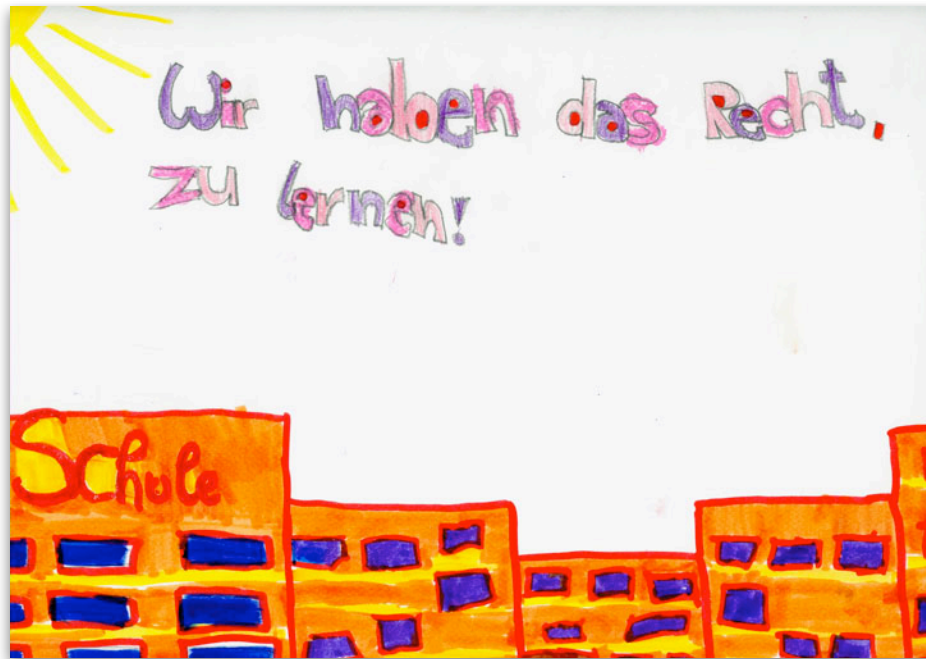 Wir haben das Recht,
zu lernen!
Schule